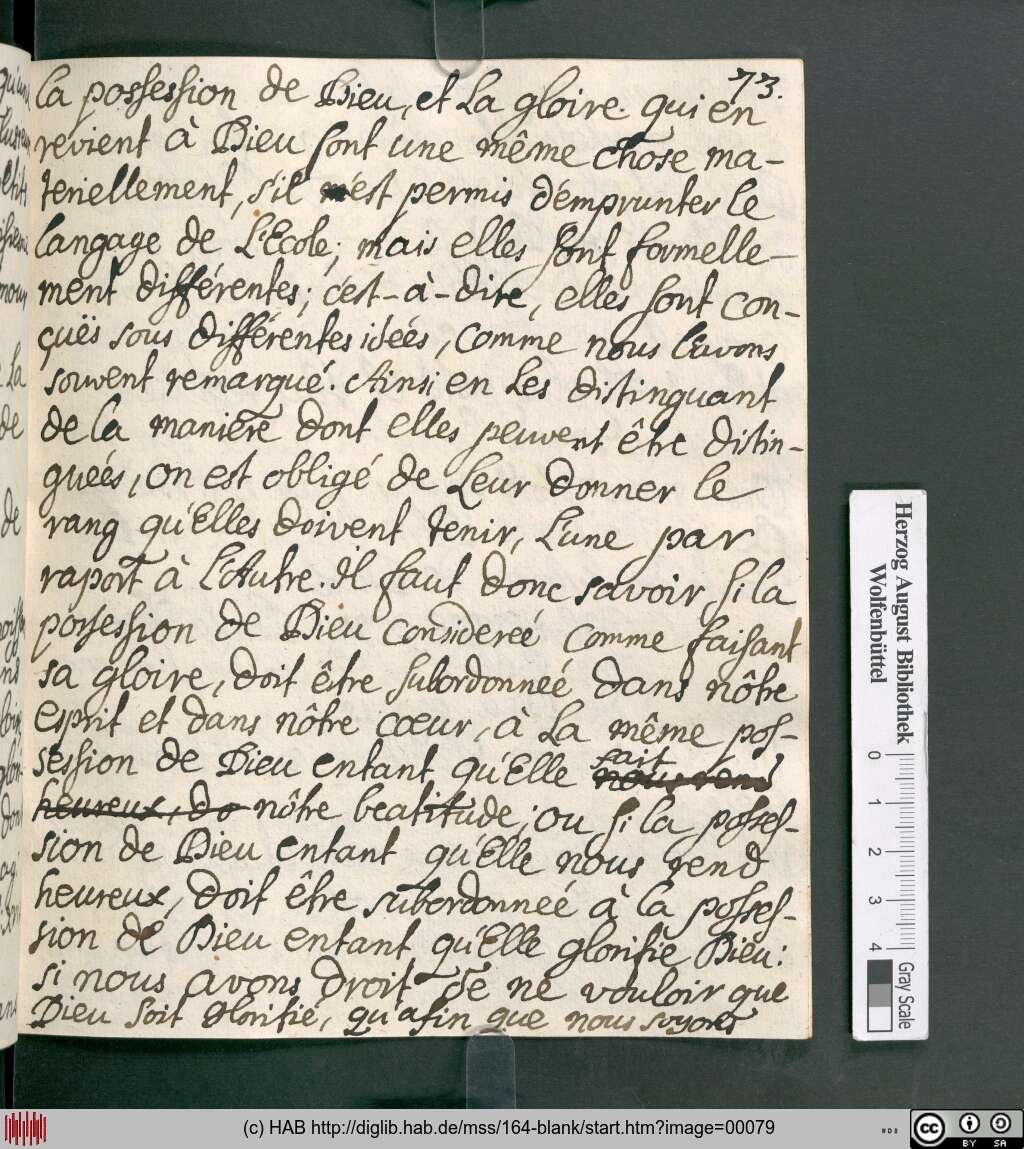 73.
la possession de Dieu, et La gloire qui en
revient à Dieu sont une même chose ma-
teriellement, s'il est permis d'emprunter le
langage de L'Ecole; mais elles sont formelle-
ment différentes; c'est-à-dire, elles sont con-
çuës sous différentes ideés, comme nous l'avons
souvent remarqué. Ainsi en Les distinguant
de la maniere dont elles peuvent être distin-
gueés, on est obligé de Leur donner le
rang qu'Elles doivent tenir, L'une par
raport à L'Autre. Il faut donc savoir, si la
possession de Dieu considereé comme faisant
sa gloire, doit être subordonneé dans nôtre
esprit et dans nôtre cœur, à La même pos-
session de Dieu entant qu'Elle fait nous rend
heureux, do nôtre beatitude; ou si la posses-
sion de Dieu entant qu'Elle nous rend
heureux, doit être subordonneé à la posses-
sion de Dieu entant qu'Elle glorifie Dieu:
si nous avons droit de ne vouloir que
Dieu soit glorifié, qu'afin que nous soyons
Herzog August Bibliothek
Wolfenbüttel
0 1 2 3 4
Gray Scale
(c) HAB http://diglib.hab.de/mss/164-blank/start.htm?image=00079
cc BY SA